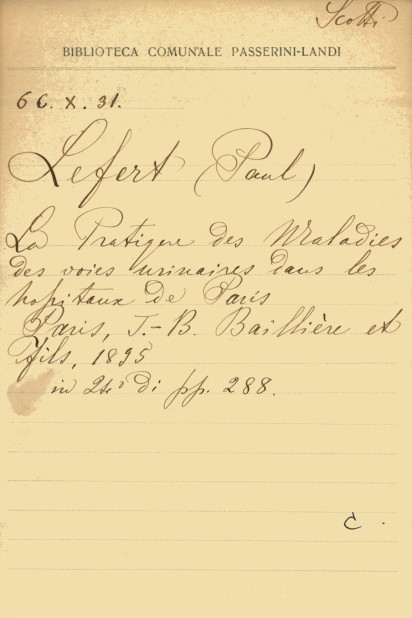 Scotti
BIBLIOTECA COMUNALE PASSERINI-LANDI
6 C. X. 31.
Lefert (Paul)
La Pratique des Maladies
des voies urinaires dans les
hopitaux de Paris
Paris, J.-B. Baillière et
Fils, 1895
in 24° di pp. 288.
C.